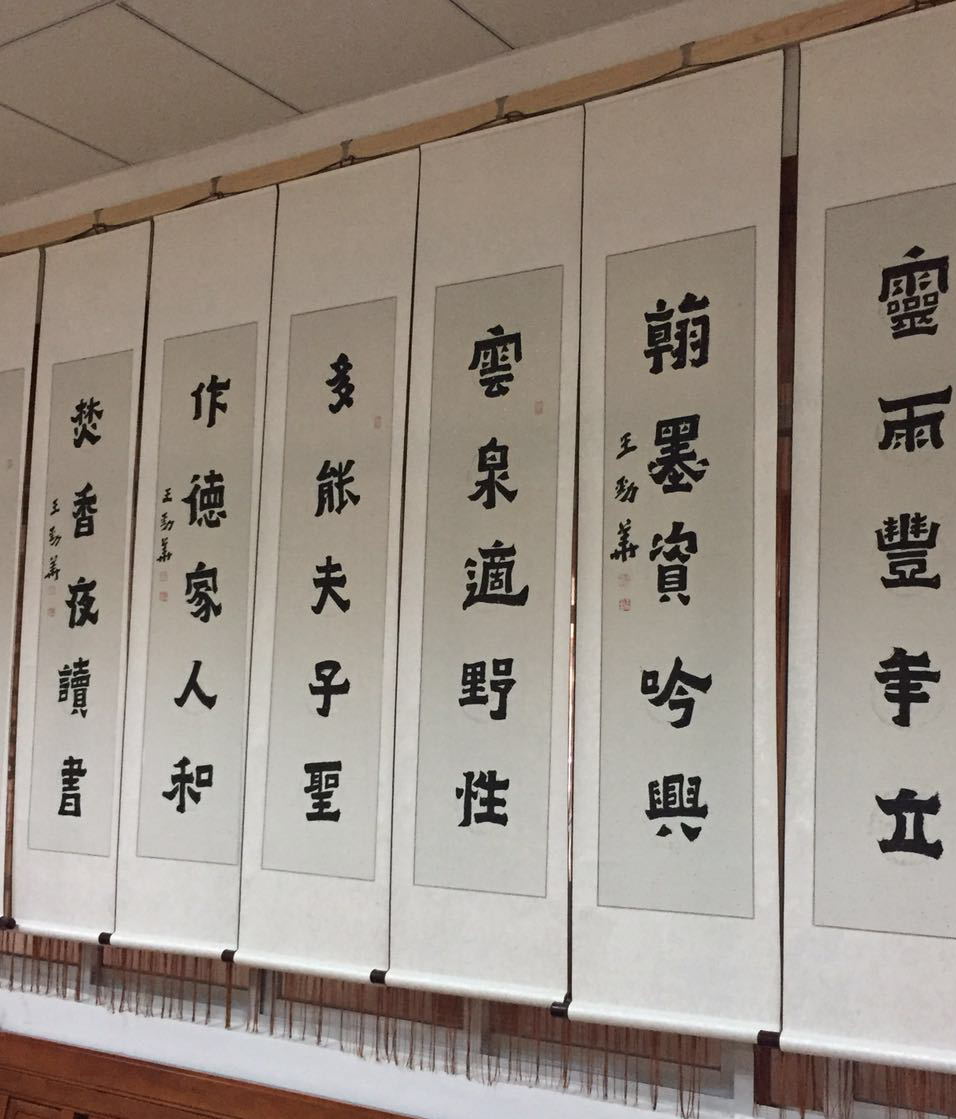 靈雨豐年立
翰墨資吟興
王勁華
雲泉適野性
多能夫子聖
作德家人和
王勁華
焚香夜讀書
王勁華